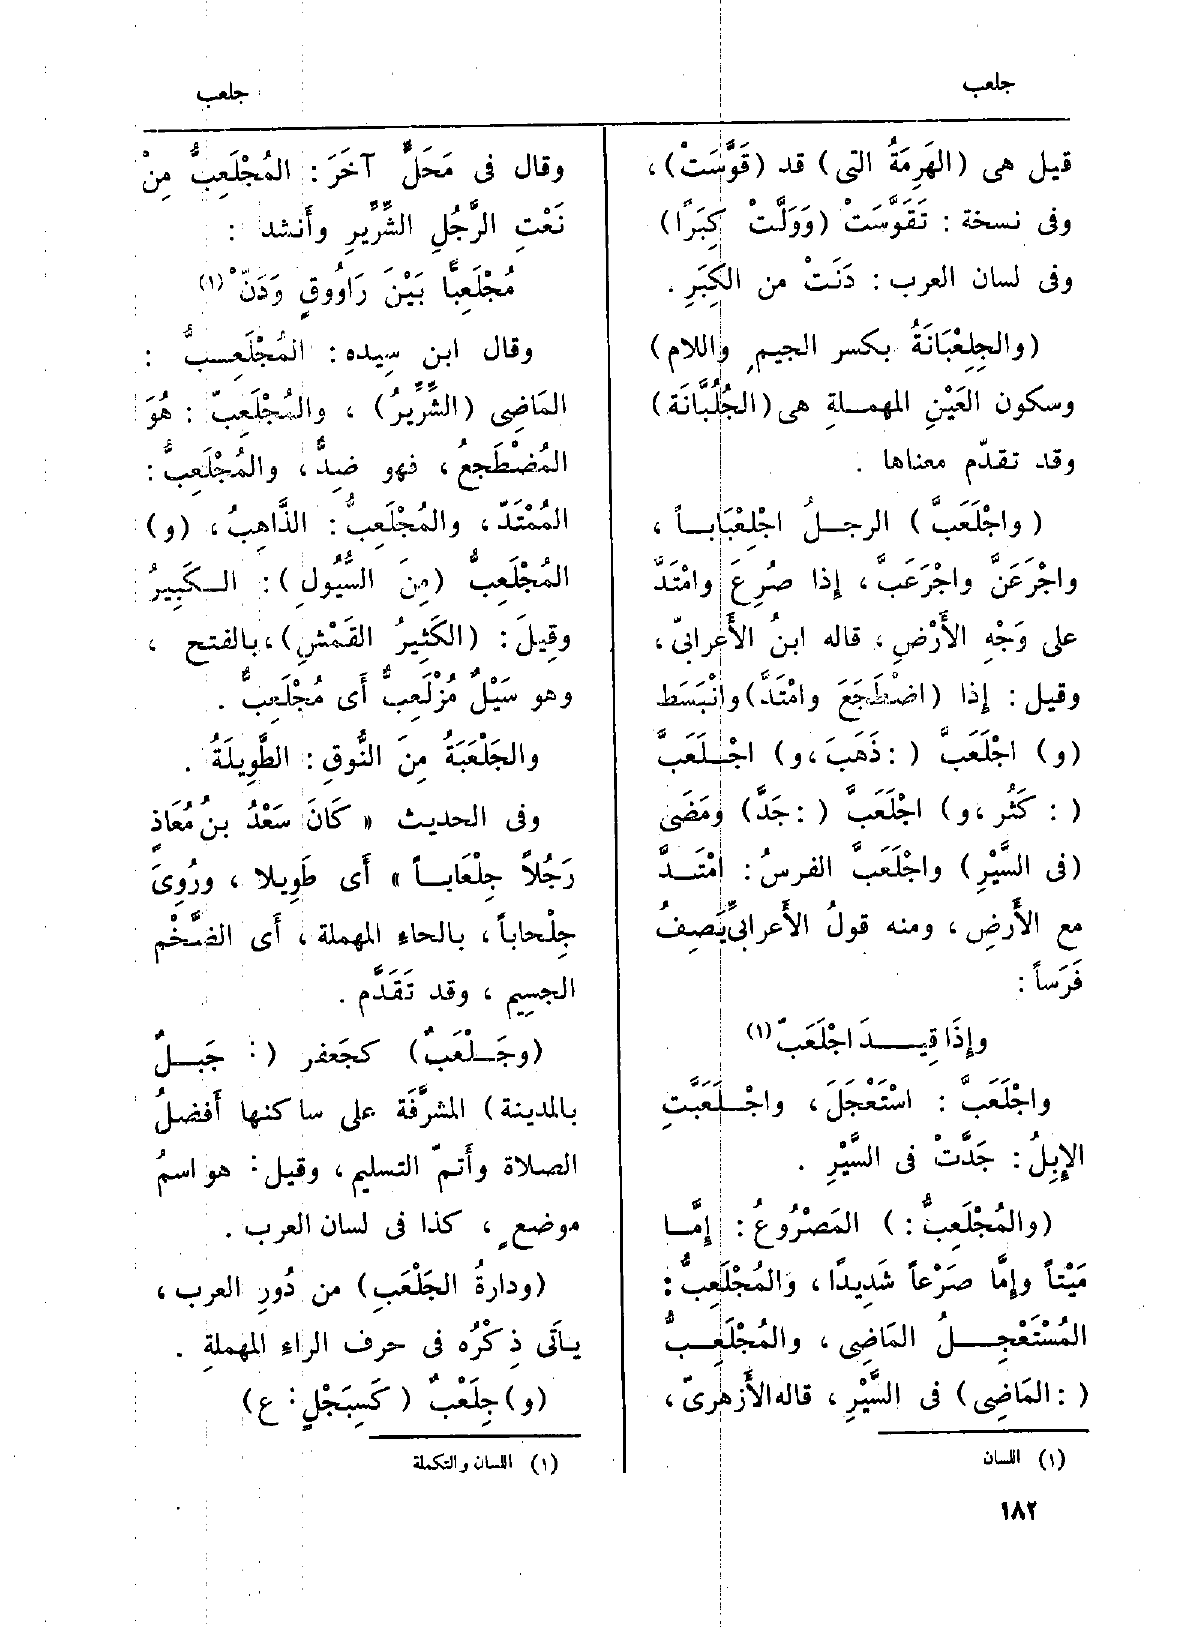 جلعب
جلعب
قيل هى (الهَرِمَةُ التى) قد (قَوَّسَتْ)،
وفى نسخة : تَقَوَّسَتْ (وَوَلَّتْ كِبَرًا)
وفى لسان العرب : دَنَتْ من الكِبَرِ .
(والجِلِعْبَانَةُ بكسر الجيم واللام)
وسكون العَيْنِ المهملةِ هى (الجُلُبَّانَة)
وقد تقدّم معناها .
(واجْلَعَبَّ) الرجلُ اجْلِعْبَاباً ،
واجْرَعَنَّ واجْرَعَبَّ، إذا صُرِعَ وامْتَدَّ
على وَجْهِ الأَرْضِ، قاله ابنُ الأَعرابىّ،
وقيل : إذا (اضْطَجَعَ وامْتَدَّ) وانْبَسَط
(و) اجْلَعَبَّ (: ذَهَبَ، و) اجْلَعَبَّ
(: كَثُر، و) اجْلَعَبَّ (: جَدَّ) ومَضَى
(فى السَّيْرِ) واجْلَعَبَّ الفرسُ : امْتَدَّ
مع الأَرضِ، ومنه قولُ الأَعرابىِّ يَصِفُ
فَرَساً :
وإِذَا قِيدَ اجْلَعَبّ (١)
واجْلَعَبَّ : اسْتَعْجَلَ، واجْلَعَبَّتِ
الإِبِلُ : جَدَّتْ فى السَّيْرِ .
(والمُجْلَعِبُّ :) المَصْرُوعُ : إِمَّا
مَيْتاً وإِمَّا صَرْعاً شَدِيدًا، والمُجْلَعِبُّ :
المُسْتَعْجِلُ المَاضِى، والمُجْلَعِبُّ
(: المَاضِى) فى السَّيْرِ، قاله الأَزهرىّ،
(١) اللسان
وقال فى مَحَلٍّ آخَرَ : المُجْلَعِبُّ مِنْ
نَعْتِ الرَّجُلِ الشِّرِّيرِ وأَنشد :
مُجْلَعِبًّا بَيْنَ رَاوُوقٍ وَدَنّْ (١)
وقال ابن سِيده : المُجْلَعِبُّ :
المَاضِى (الشِّرِّيرُ) ، والمُجْلَعِبّ : هُوَ
المُضْطَجِعُ، فهو ضِدٌّ، والمُجْلَعِبُّ :
المُمْتَدّ، والمُجْلَعِبُّ : الذَّاهِبُ، (و)
المُجْلَعِبُّ (مِنَ السُّيُولِ) : الكَبِيرُ
وقِيلَ : (الكَثِيرُ القَمْشِ)، بالفتح ،
وهو سَيْلٌ مُزْلَعِبٌّ أَى مُجْلَعِبٌّ .
والجَلْعَبَةُ مِنَ النُّوقِ : الطَّوِيلَةُ .
وفى الحديث « كَانَ سَعْدُ بنُ مُعَاذٍ
رَجُلاً جِلْعَاباً » أَى طَوِيلا ، ورُوِىَ
جِلْحاباً، بالحاءِ المهملة، أَى الضَّخْم
الجسِيم ، وقد تَقَدَّم .
(وجَلْعَبٌ) كجَعفر (: جَبلٌ
بالمدينة) المشرَّفَة على ساكنها أَفضلُ
الصلاة وأَتمّ التسليم، وقيل : هو اسمُ
موضعٍ، كذا فى لسان العرب .
(ودارةُ الجَلْعَبِ) من دُورِ العرب ،
يأَتى ذِكْرُه فى حرف الراءِ المهملةِ .
(و) جِلَعْبٌ (كَسِبَحْلٍ : ع)
(١) اللسان والتكملة
١٨٢